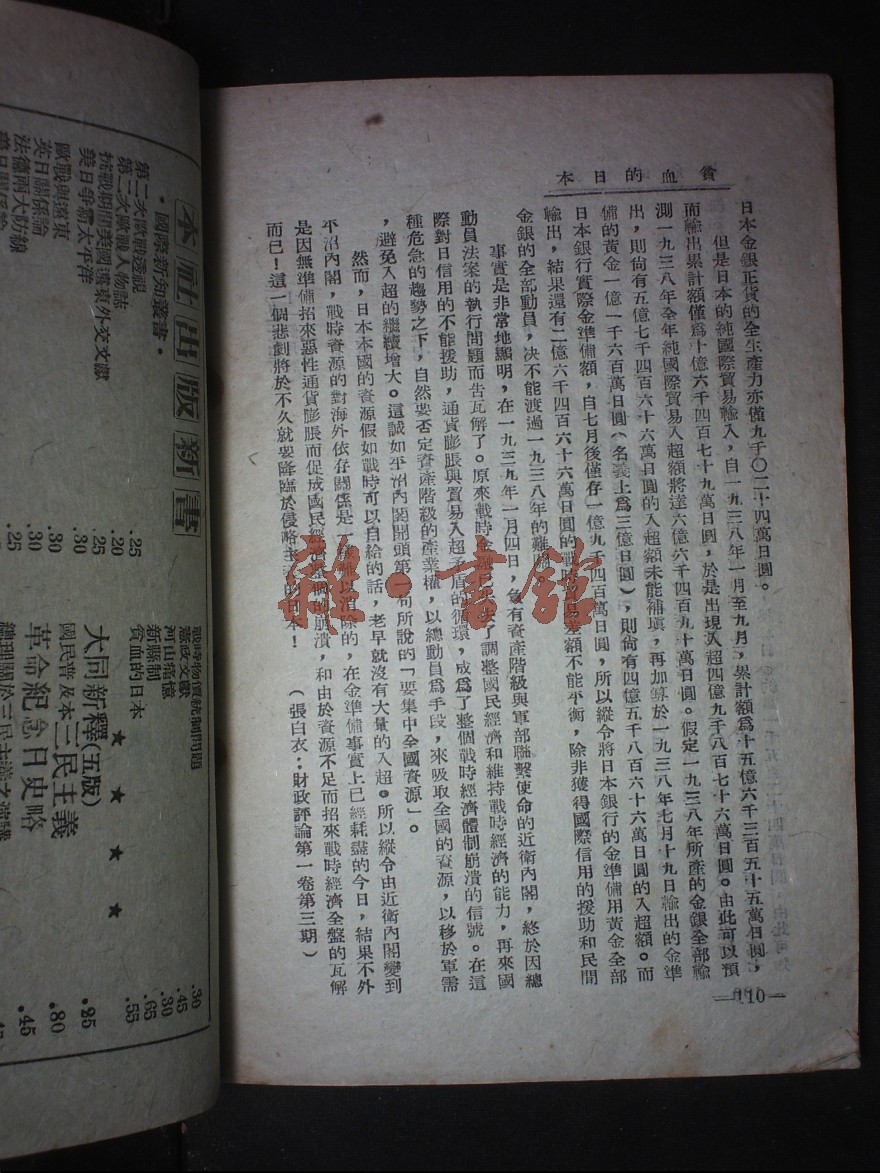 貧血的日本
日本金銀正貨的全生產力亦僅九千〇二十四萬日圓。
但是日本的純國際貿易輸入，自一九三八年一月至九月，累計額爲十五億六千三百五十五萬日圓，
而輸出累計額僅爲十億六千四百七十九萬日圓，於是出現入超四億九千八百七十六萬日圓。由此可以預
測一九三八年全年純國際貿易入超額將達六億六千四百九十萬日圓。假定一九三八年所產的金銀全部輸
出，則尙有五億七千四百六十六萬日圓的入超額未能補塡，再加算於一九三八年七月十九日輸出的金準
備的黃金一億一千六百萬日圓（名義上爲三億日圓），則尙有四億五千八百六十六萬日圓的入超額。而
日本銀行實際金準備額，自七月後僅存一億九千四百萬日圓，所以縱令將日本銀行的金準備用黃金全部
輸出，結果還有二億六千四百六十六萬日圓的戰時貿易差額不能平衡，除非獲得國際信用的援助和民間
金銀的全部動員，決不能渡過一九三八年的難關。
事實是非常地顯明，在一九三九年一月四日，負有資產階級與軍部聯繫使命的近衛內閣，終於因總
動員法案的執行問題而告瓦解了。原來戰時金融已失去了調整國民經濟和維持戰時經濟的能力，再來國
際對日信用的不能援助，通貨膨脹與貿易入超矛盾的循環，成爲了整個戰時經濟體制崩潰的信號。在這
種危急的趨勢之下，自然要否定資產階級的產業權，以總動員爲手段，來吸取全國的資源，以移於軍需
，避免入超的繼續增大。這誠如平沼內閣開頭第一句所說的「要集中全國資源」。
然而，日本本國的資源假如戰時可以自給的話，老早就沒有大量的入超。所以縱令由近衛內閣變到
平沼內閣，戰時資源的對海外依存關係是一樣難以消除的，在金準備事實上已經耗盡的今日，結果不外
是因無準備招來惡性通貨膨脹而促成國民經濟整個的崩潰，和由於資源不足而招來戰時經濟全盤的瓦解
而已！這一個悲劇將於不久就要降臨於侵略主義的日本！
（張白衣：財政評論第一卷第三期）
—110—
本社出版新書
•國際新知叢書•
第二次歐戰透視 .25
第二次歐戰人物誌 .20
抗戰期間美國遠東外交文獻 .25
美日爭霸太平洋 .30
歐戰與遠東 .30
英日關係論 .30
法德兩大防線 .25
美日關係論
戰時物價統制問題 .30
憲政文獻 .45
河山痛憶 .30
新縣制 .65
貧血的日本 .55
★ ★ ★ ★
大同新釋(五版) .85
國民普及本三民主義 .80
革命紀念日史略 .45
總理關於三民主義之演講 .45
雜·書館